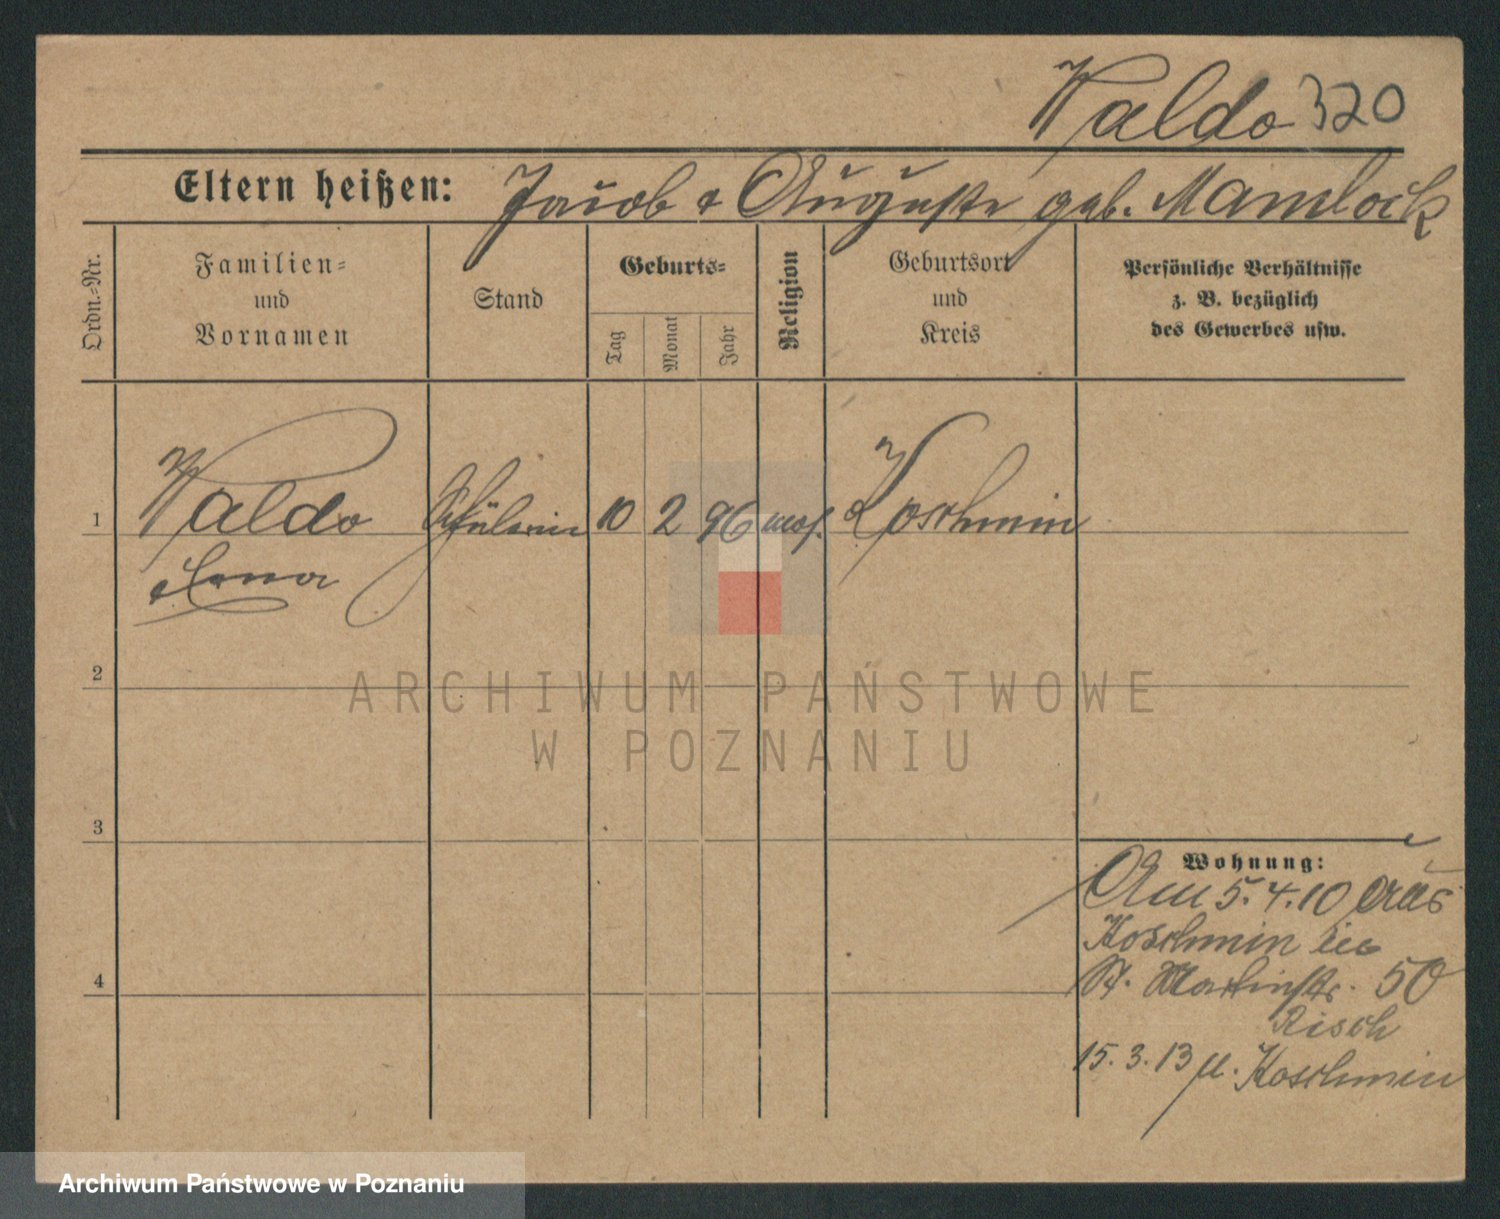 Waldo 320
Eltern heißen: Jacob & Auguste geb. Mamlock
Ordn.-Nr.
Familien-
und
Vornamen
Stand
Geburts-
Tag
Monat
Jahr
Religion
Geburtsort
und
Kreis
Persönliche Verhältnisse
z. B. bezüglich
des Gewerbes usw.
1 Waldo Schülerin 10 2 96 mos. Koschmin
2
ARCHIWUM PAŃSTWOWE
W POZNANIU
3
Wohnung:
Am 5.4.10 aus
Koschmin
4
St. Martinstr. 50
Risch
15.3.13 Koschmin
Archiwum Państwowe w Poznaniu